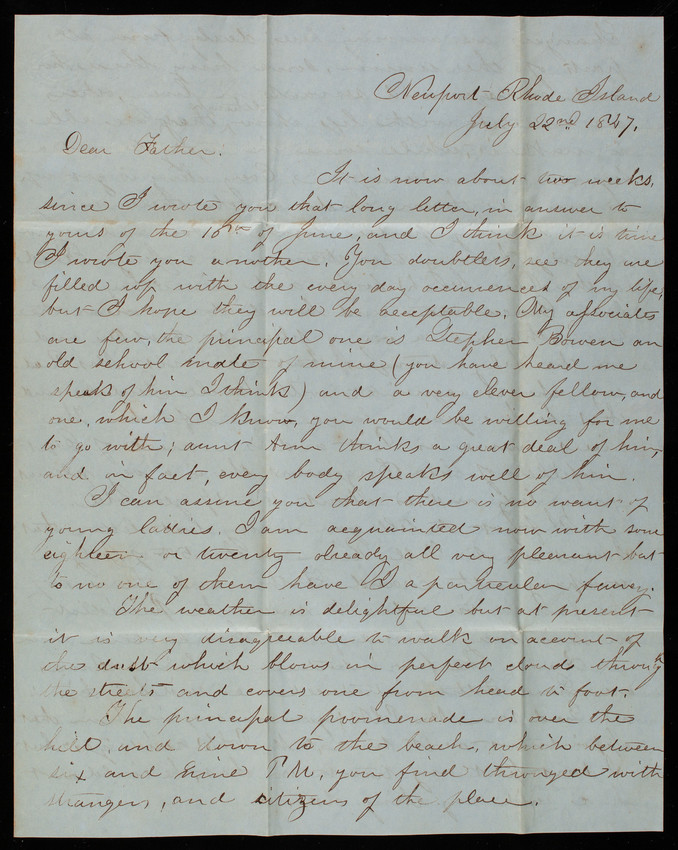 Newport Rhode Island
July 22nd. 1847.
Dear Father.
It is now about two weeks,
since I wrote you that long letter, in answer to
yours of the 10th of June, and I think it is time
I wrote you another. You doubtless, see they are
filled up with the every day occurences of my life,
but I hope they will be acceptable. My associates
are few, the principal one is Stephen Bowen an
old school mate of mine (you have heard me
speak of him I think) and a very clever fellow, and
one, which I know, you would be willing for me
to go with; aunt Ann thinks a great deal of him,
and in fact, every body speaks well of him.
I can assure you that there is no want of
young ladies. I am acquainted now with some
eighteen or twenty already all very pleasant but
to no one of them have I a particular fancy.
The weather is delightful but at present
it is very disagreeable to walk on account of
the dust which blows in perfect cloud throug
the streets and covers one from head to foot.
The principal poomenade is over the
hill, and down to the beach, which between
six and nine P M, you find thronged with
strangers, and citizens of the place.